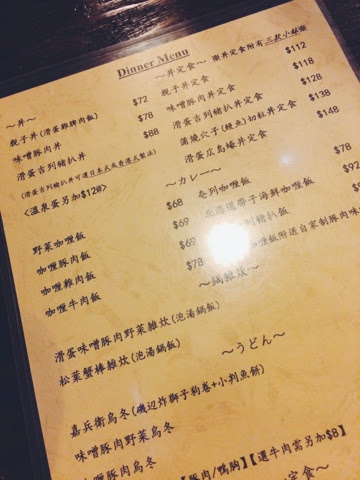 Dinner Menu
～丼～
親子丼(滑蛋雞脾肉飯) $72
味噌豚肉丼 $78
滑蛋吉列豬扒丼 $88
(滑蛋吉列豬扒丼可選日本式或香港式製法)
<溫泉蛋另加$12@>
～丼定食～ 澱丼定食附有三款小菜
親子丼定食 $112
味噌豚肉丼定食 $118
滑蛋吉列豬扒丼定食 $128
蒲燒穴子(鰻魚)切粒丼定食 $138
滑蛋広島蠔丼定食 $148
～カレー～
野菜咖喱飯 $68
咖喱豚肉飯 $69
咖喱雞肉飯 $69
咖喱牛肉飯 $78
吞列咖喱飯 $78
北海道帶子海鮮咖喱飯 $92
列豬扒飯
咖喱飯附送自家製豚肉味
～鍋雑炊～
滑蛋味噌豚肉野菜雑炊(泡湯鍋飯)
松葉蟹棒雑炊(泡湯鍋飯)
～うどん～
嘉兵衛烏冬(磯辺炸獅子狗卷+小判魚餅)
味噌豚肉野菜烏冬
味噌豚肉烏冬
【豚肉/鴨胸】【選牛肉需另加$8】
定食～